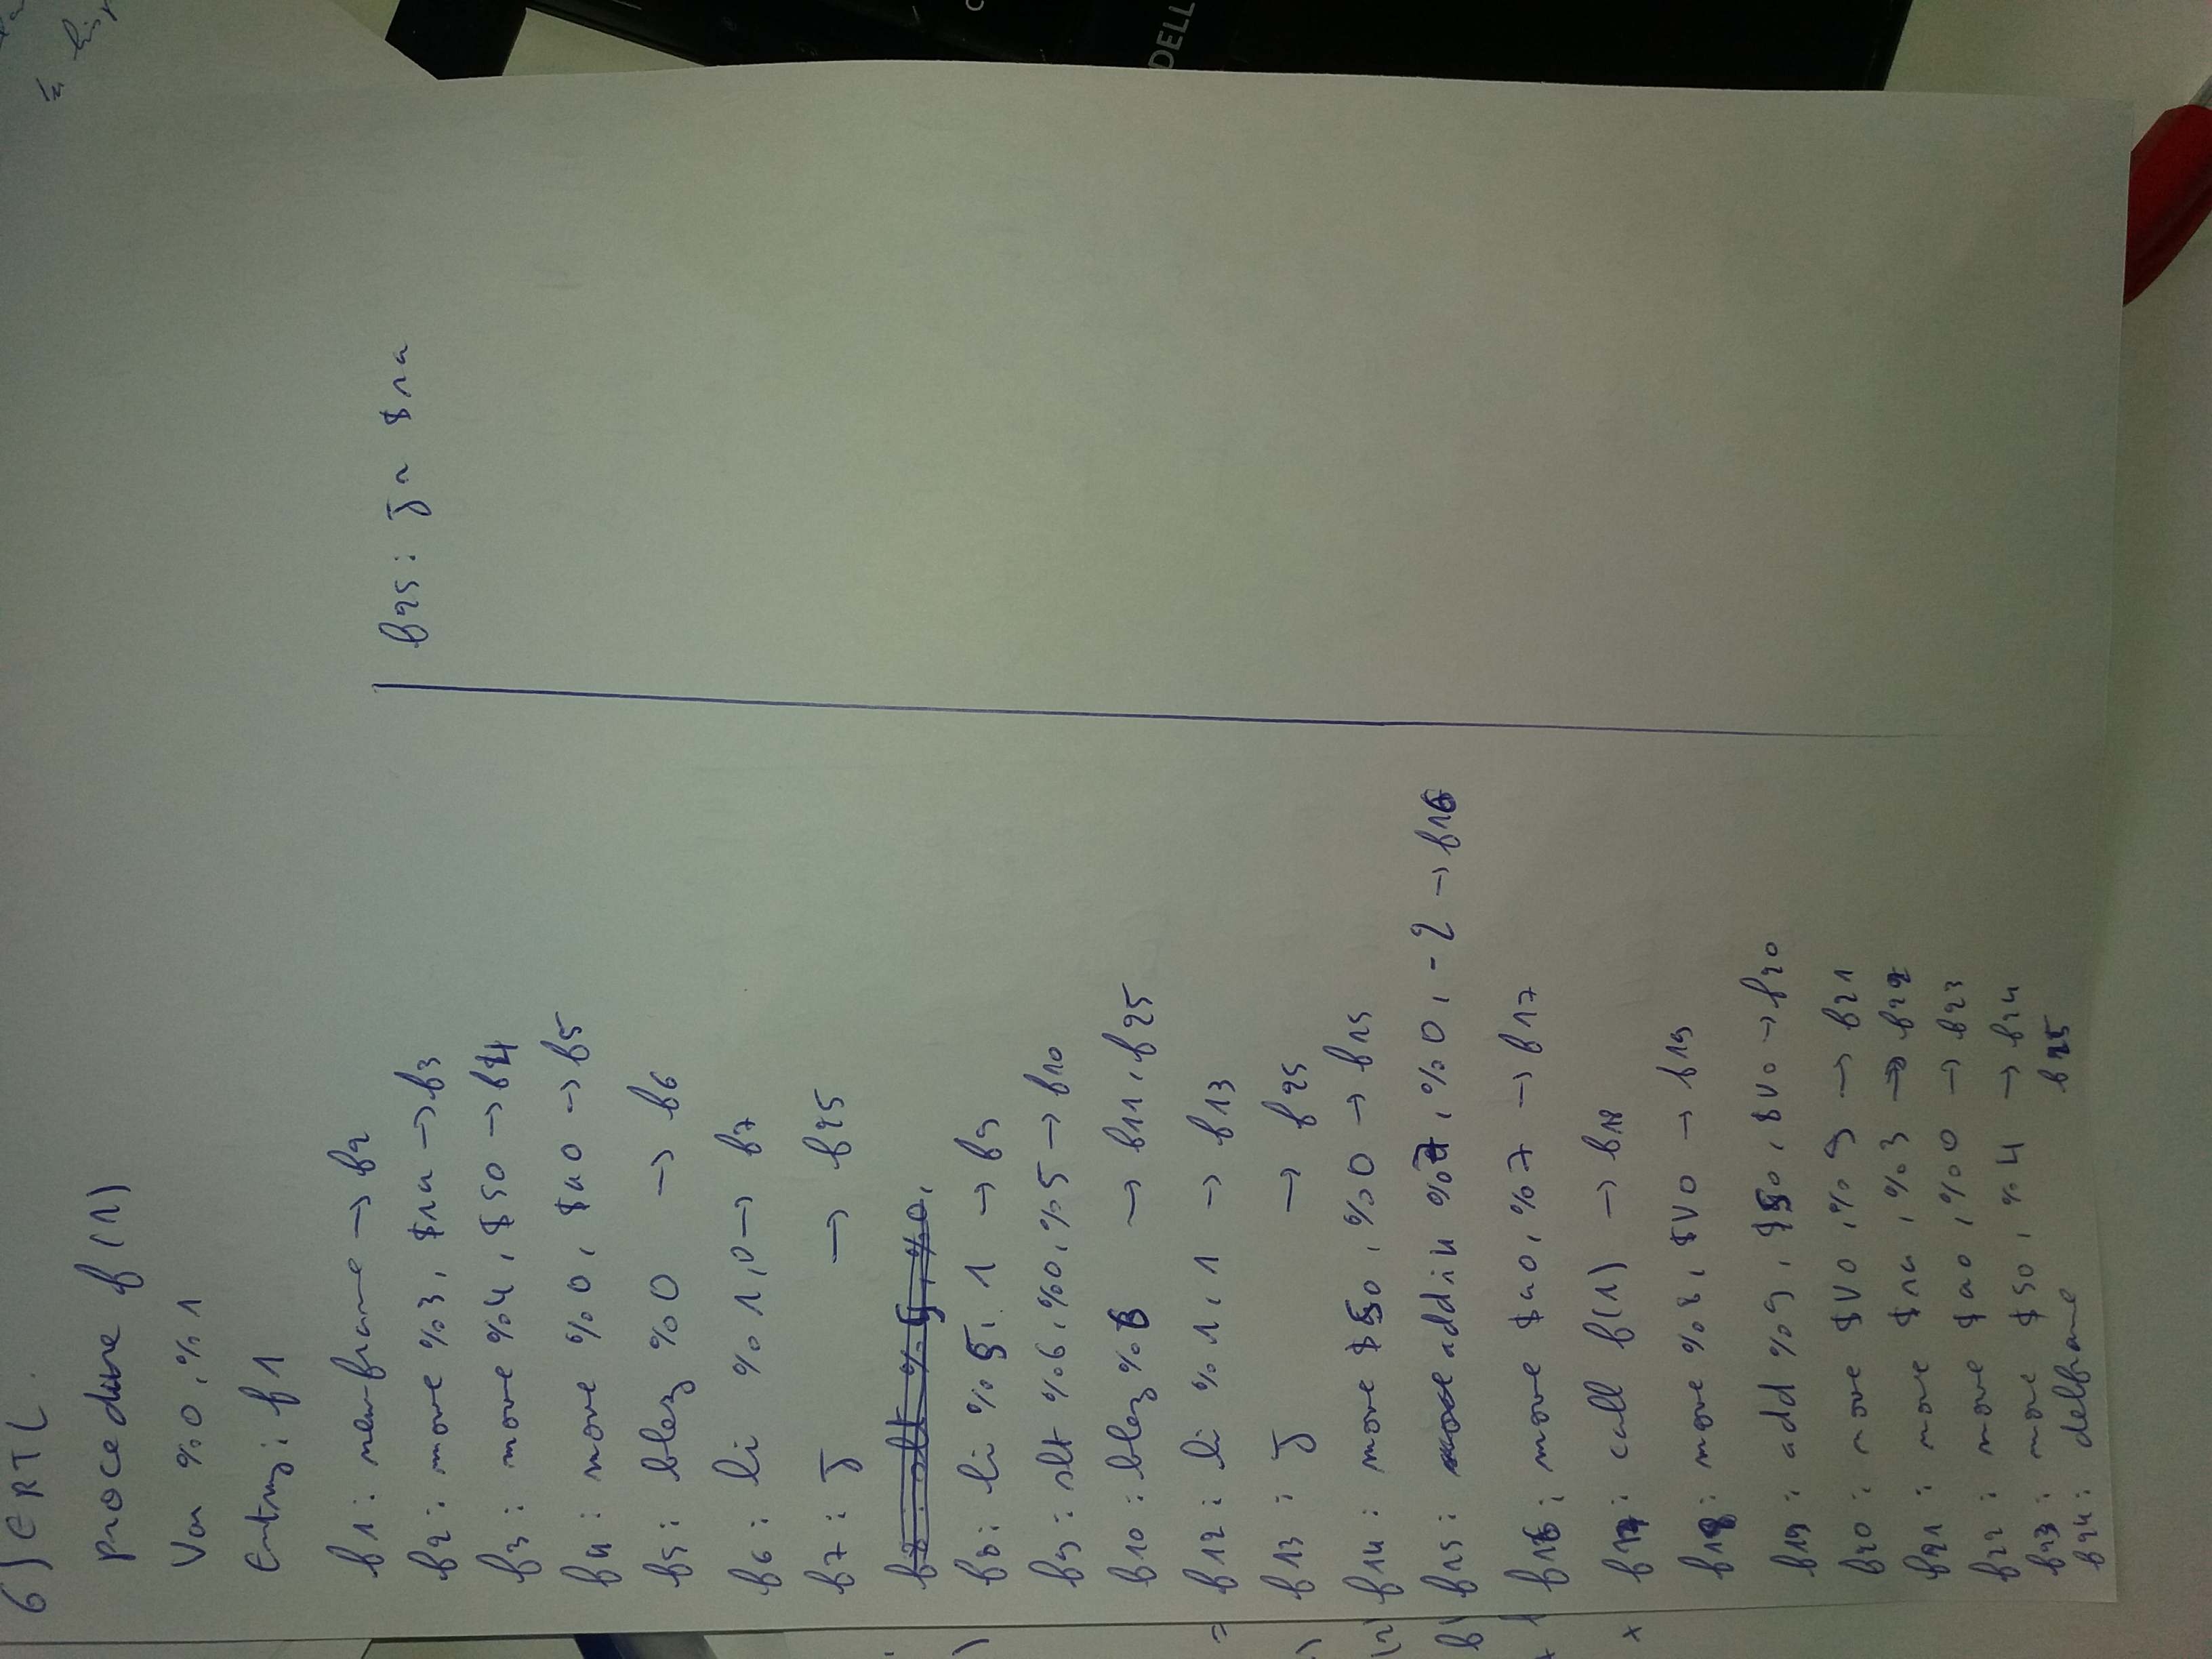 6) ERTL.
procedure f(1)
Var %0, %1
Entry: f1
f1: newframe → f2
f2: move %3, $ra → f3
f3: move %4, $s0 → f4
f4: move %0, $a0 → f5
f5: blez %0 → f6
f6: li %1, 0 → f7
f7: J → f25
f8: slt %5, %0,
f8: li %5, 1 → f9
f9: slt %6, %0, %5 → f10
f10: blez %6 → f11, f25
f12: li %1, 1 → f13
f13: J → f25
f14: move $s0, %0 → f15
f15: move addiu %7, %0, -2 → f16
f16: move $a0, %7 → f17
f17: call f(1) → f18
f18: move %8, $v0 → f19
f19: add %9, $s0, $v0 → f20
f20: move $v0, %9 → f21
f21: move $ra, %3 → f22
f22: move $a0, %0 → f23
f23: move $s0, %4 → f24
f24: delframe f25
f25: Jr $ra
DELL